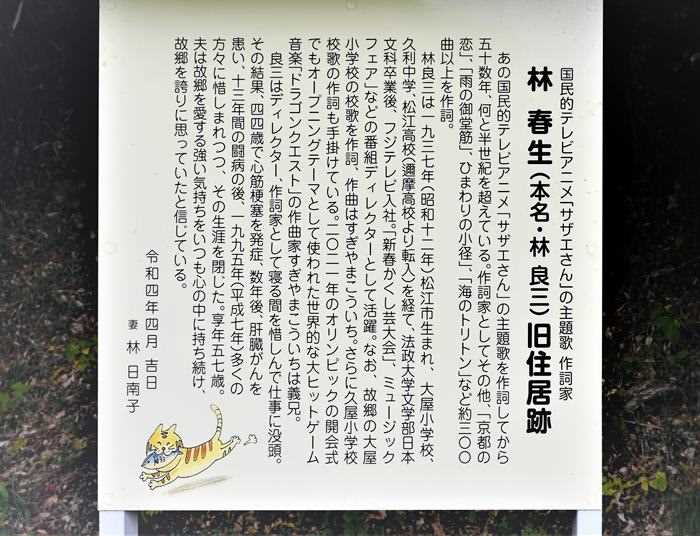 国民的テレビアニメ「サザエさん」の主題歌 作詞家
林 春生（本名・林 良三）旧住居跡
あの国民的テレビアニメ「サザエさん」の主題歌を作詞してから
五十数年、何と半世紀を超えている。作詞家としてその他、「京都の
恋」、「雨の御堂筋」、「ひまわりの小径」、「海のトリトン」など約三〇〇
曲以上を作詞。
林良三は一九三七年（昭和十二年）松江市生まれ、大屋小学校、
久利中学、松江高校（邇摩高校より転入）を経て、法政大学文学部日本
文科卒業後、フジテレビ入社。「新春かくし芸大会」、ミュージック
フェア」などの番組ディレクターとして活躍。なお、故郷の大屋
小学校の校歌を作詞、作曲はすぎやまこういち。さらに久屋小学校
校歌の作詞も手掛けている。二〇二一年のオリンピックの開会式
でもオープニングテーマとして使われた世界的な大ヒットゲーム
音楽「ドラゴンクエスト」の作曲家すぎやまこういちは義兄。
良三はディレクター、作詞家として寝る間を惜しんで仕事に没頭。
その結果、四四歳で心筋梗塞を発症、数年後、肝臓がんを
患い、十三年間の闘病の後、一九九五年（平成七年）多くの
方々に惜しまれつつ、その生涯を閉じた。享年五七歳。
夫は故郷を愛する強い気持ちをいつも心の中に持ち続け、
故郷を誇りに思っていたと信じている。
令和四年四月 吉日
妻 林 日南子